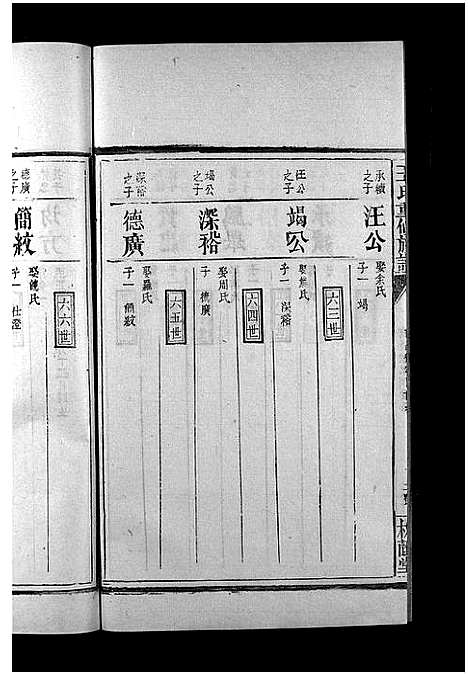 永績之子
汪公
娶余氏
子一 竭
六三世
汪公之子
竭公
娶熊氏
子一 深裕
六四世
竭公之子
深裕
娶周氏
子一 德廣
六五世
深裕之子
德廣
娶羅氏
子一 簡紋
六六世
德廣之子
簡紋
娶饒氏
子一 仕澄